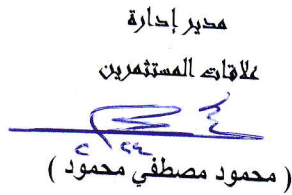 مدير إدارة
علاقات المستثمرين
( محمود مصطفي محمود )